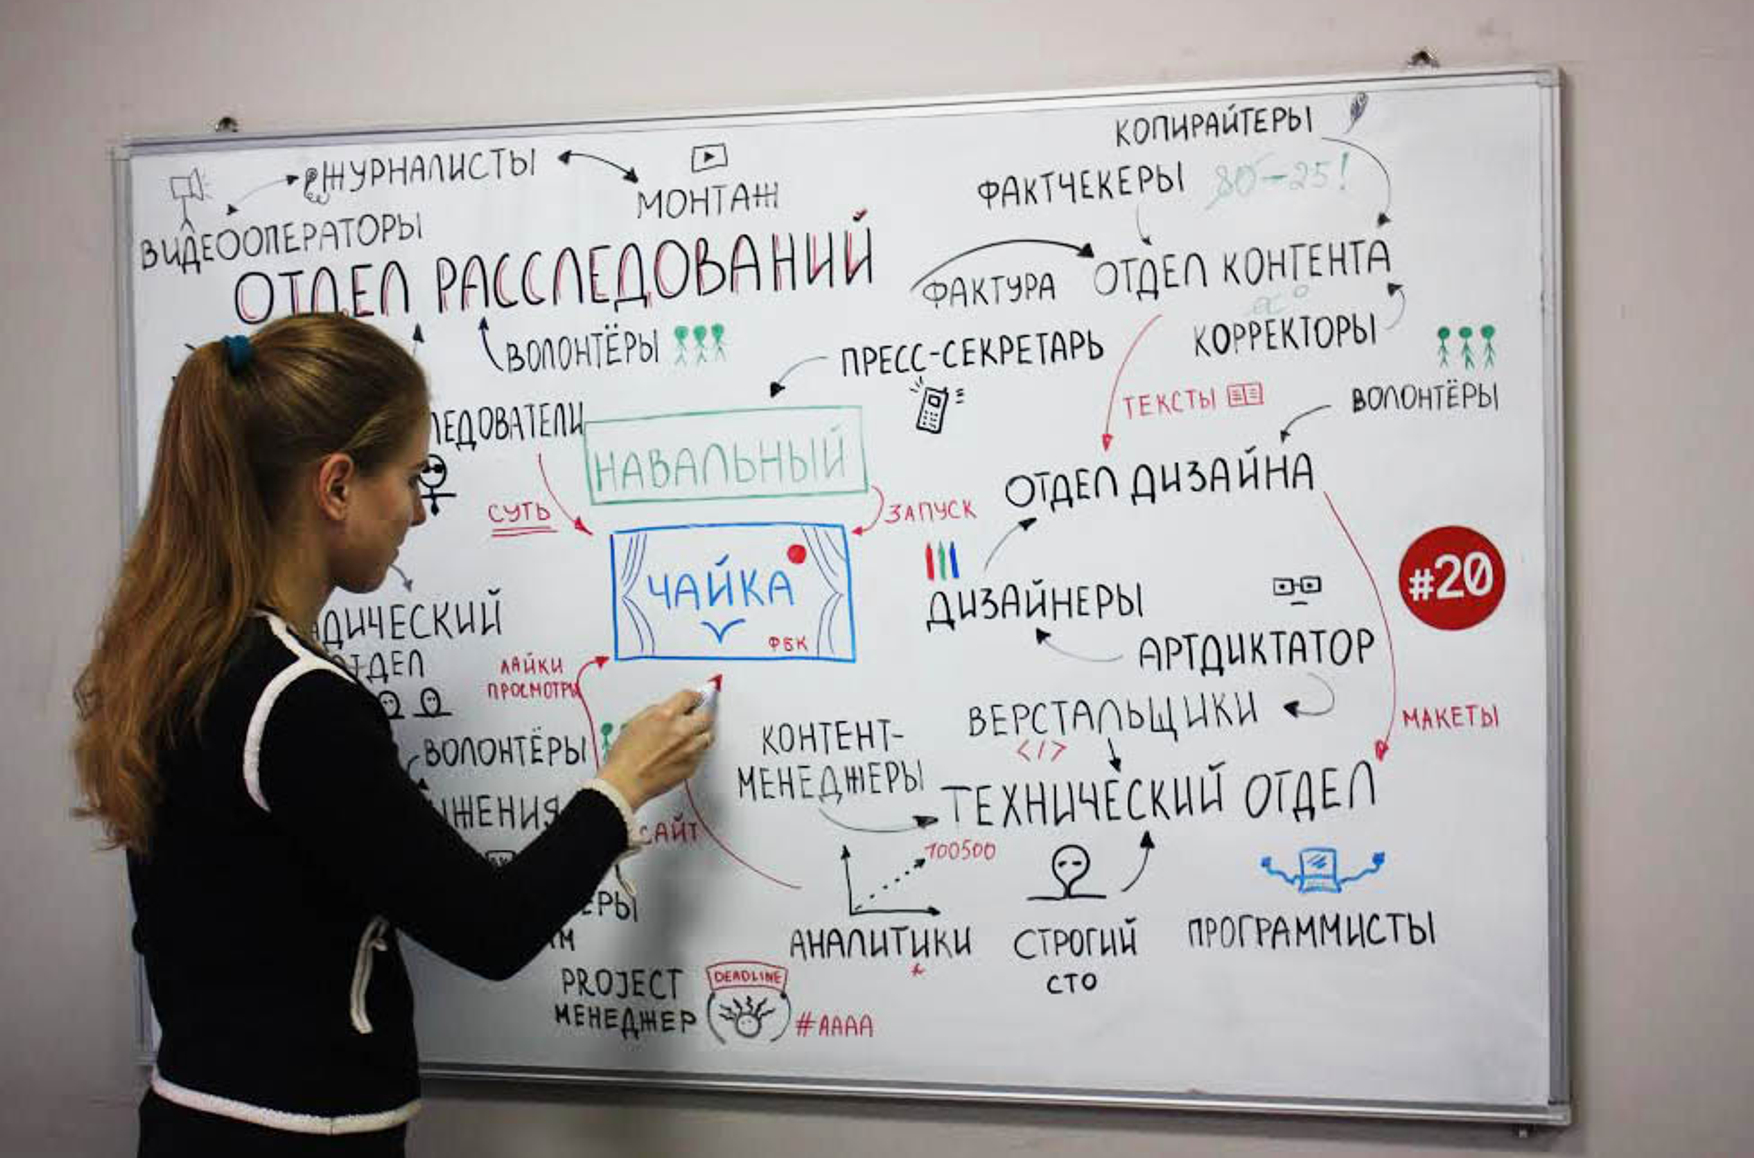 КОПИРАЙТЕРЫ
ЖУРНАЛИСТЫ
МОНТАЖ
ФАКТЧЕКЕРЫ
80-25!
ВИДЕООПЕРАТОРЫ
ОТДЕЛ РАССЛЕДОВАНИЙ
ФАКТУРА
ОТДЕЛ КОНТЕНТА
ВОЛОНТЁРЫ
ПРЕСС-СЕКРЕТАРЬ
КОРРЕКТОРЫ
ТЕКСТЫ
ВОЛОНТЁРЫ
ЛЕДОВАТЕЛИ
НАВАЛЬНЫЙ
ОТДЕЛ ДИЗАЙНА
СУТЬ
ЗАПУСК
ЧАЙКА
ФБК
#20
ДИЗАЙНЕРЫ
ДИЧЕСКИЙ
ОТДЕЛ
АРТДИКТАТОР
ЛАЙКИ
ПРОСМОТРЫ
ВЕРСТАЛЬЩИКИ
</>
МАКЕТЫ
ВОЛОНТЁРЫ
КОНТЕНТ-
МЕНЕДЖЕРЫ
ТЕХНИЧЕСКИЙ ОТДЕЛ
ЖЕНИЯ
САЙТ
100500
ЕРЫ
АНАЛИТИКИ
СТРОГИЙ
СТО
ПРОГРАММИСТЫ
PROJECT
МЕНЕДЖЕР
DEADLINE
#АААА